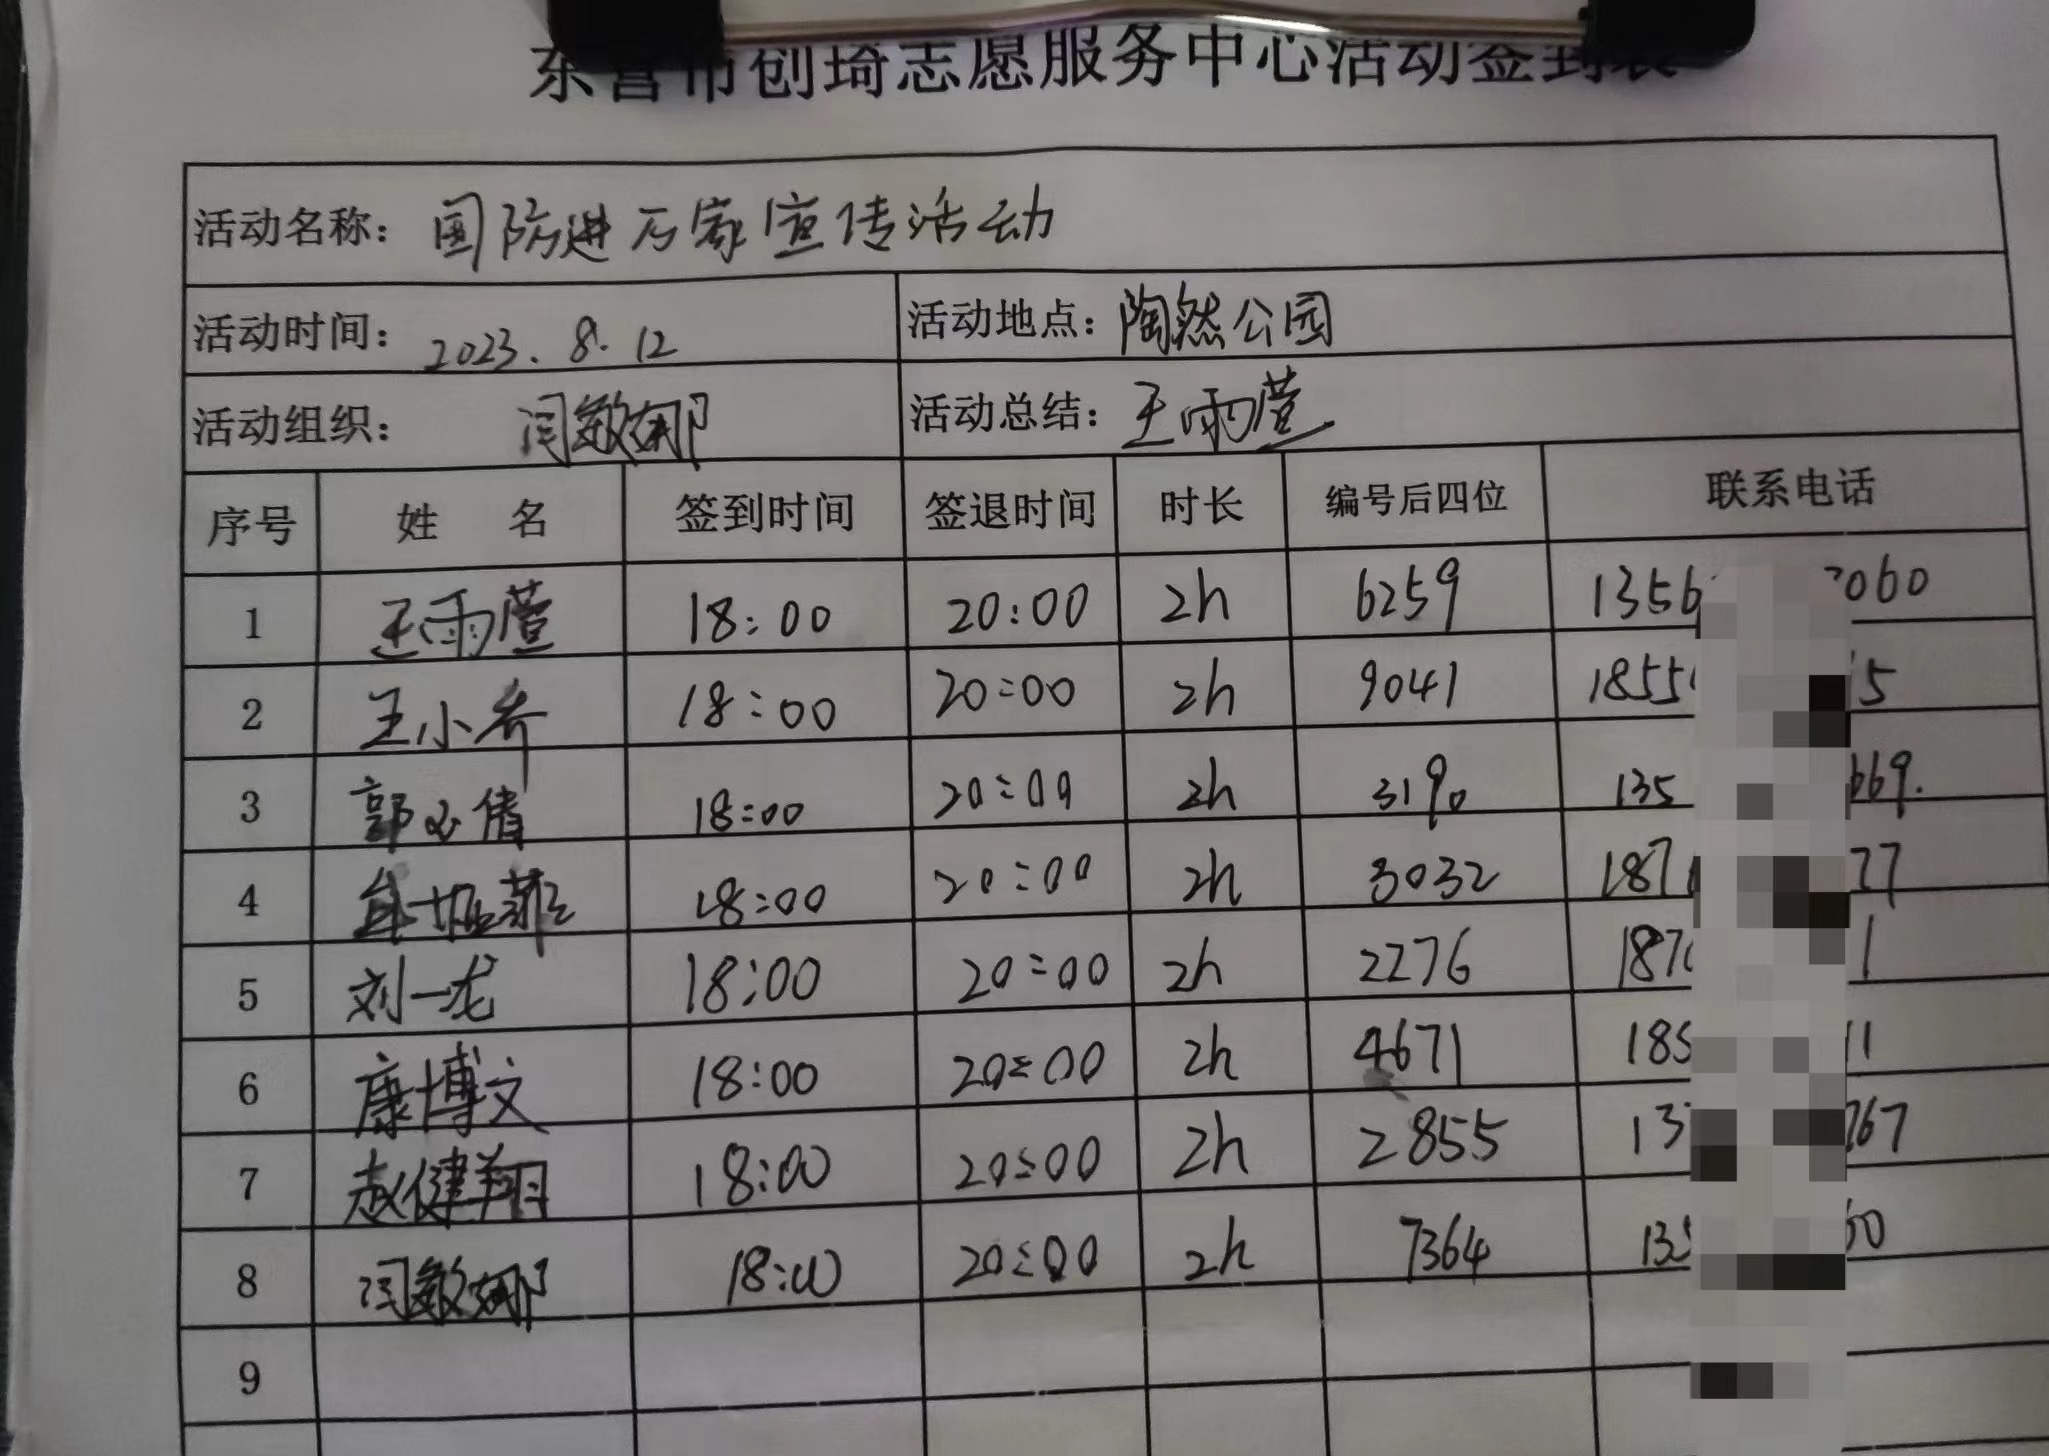 东营市创琦志愿服务中心活动签到表
活动名称：国防进万家宣传活动
活动时间：2023.8.12 活动地点：陶然公园
活动组织：闫敏娜 活动总结：王雨萱
序号 姓 名 签到时间 签退时间 时长 编号后四位 联系电话
1 王雨萱 18:00 20:00 2h 6259 1356 060
2 王小乔 18:00 20:00 2h 9041 1855 5
3 郭必倩 18:00 20:00 2h 3190 135 669.
4 18:00 20:00 2h 3032 187 77
5 刘一龙 18:00 20:00 2h 2276 187 1
6 康博文 18:00 20:00 2h 4671 185 11
7 赵健翔 18:00 20:00 2h 2855 13 767
8 闫敏娜 18:00 20:00 2h 7364 135 60
9